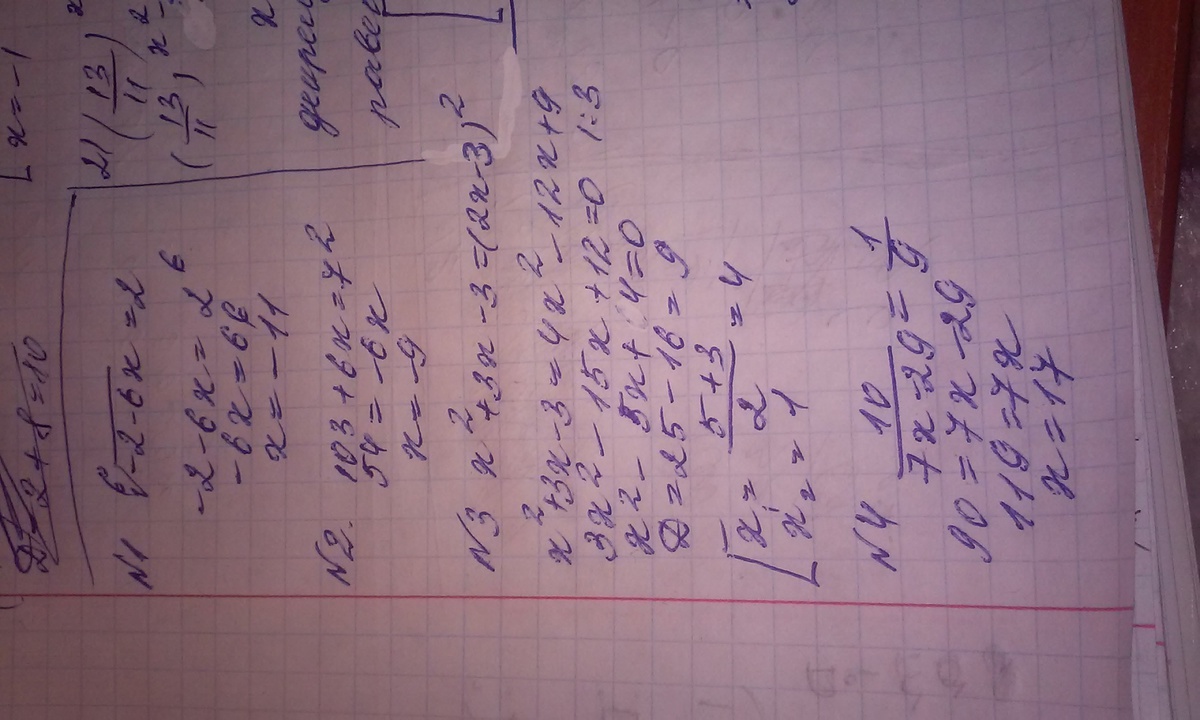 [ x = -1
Д = 2 + 8 = 10
N1 ⁶√-2-6x = 2
-2-6x = 2⁶
-6x = 66
x = -11
N2. 103+6x = 7²
54 = -6x
x = -9
N3 x²+3x-3 = (2x-3)²
x²+3x-3 = 4x²-12x+9
3x²-15x+12=0 |:3
x²-5x+4=0
D = 25-16 = 9
[ x₁ = 5+3/2 = 4
x₂ = 1
N4 10/7x-29 = 1/9
90 = 7x-29
119 = 7x
x = 17
2) (13/11)
(13/11)